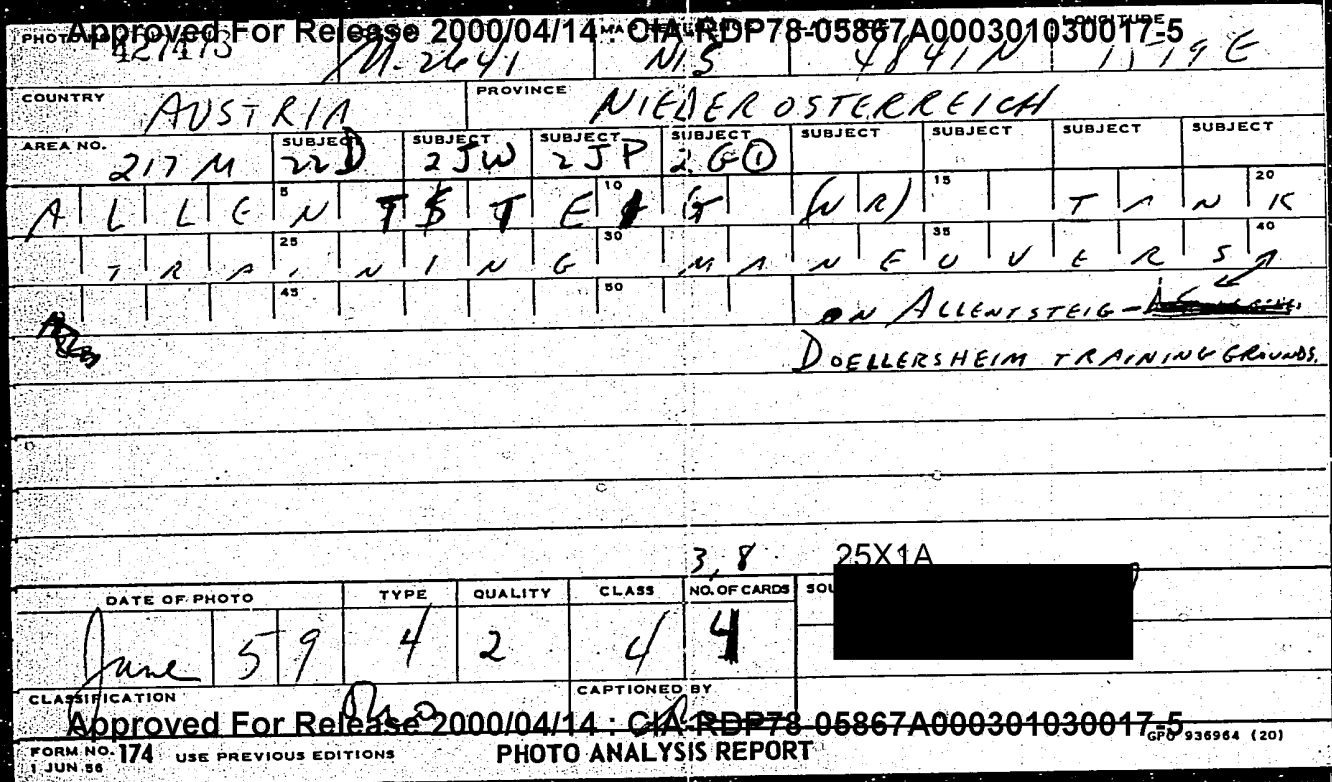 Approved For Release 2000/04/14 : CIA-RDP78-05867A000301030017-5
LONGITUDE
M-2641 NIS 4841N
COUNTRY AUSTRIA PROVINCE NIEDEROSTERREICH
AREA NO. SUBJECT SUBJECT SUBJECT SUBJECT SUBJECT SUBJECT SUBJECT SUBJECT
217 M 22D 2JW 2JP 2G①
5 10 15 20
(NR) TANK
25 30 35 40
TRAINING MANEUVERS
45 50
ON ALLENTSTEIG-
DOELLERSHEIM TRAINING GROUNDS.
3, 8 25X1A
DATE OF PHOTO TYPE QUALITY CLASS NO. OF CARDS
June 59 4 2 4 4
CLASSIFICATION CAPTIONED BY
Approved For Release 2000/04/14 : CIA-RDP78-05867A000301030017-5
GPO 936964 (20)
FORM NO. 174 USE PREVIOUS EDITIONS PHOTO ANALYSIS REPORT
1 JUN 56